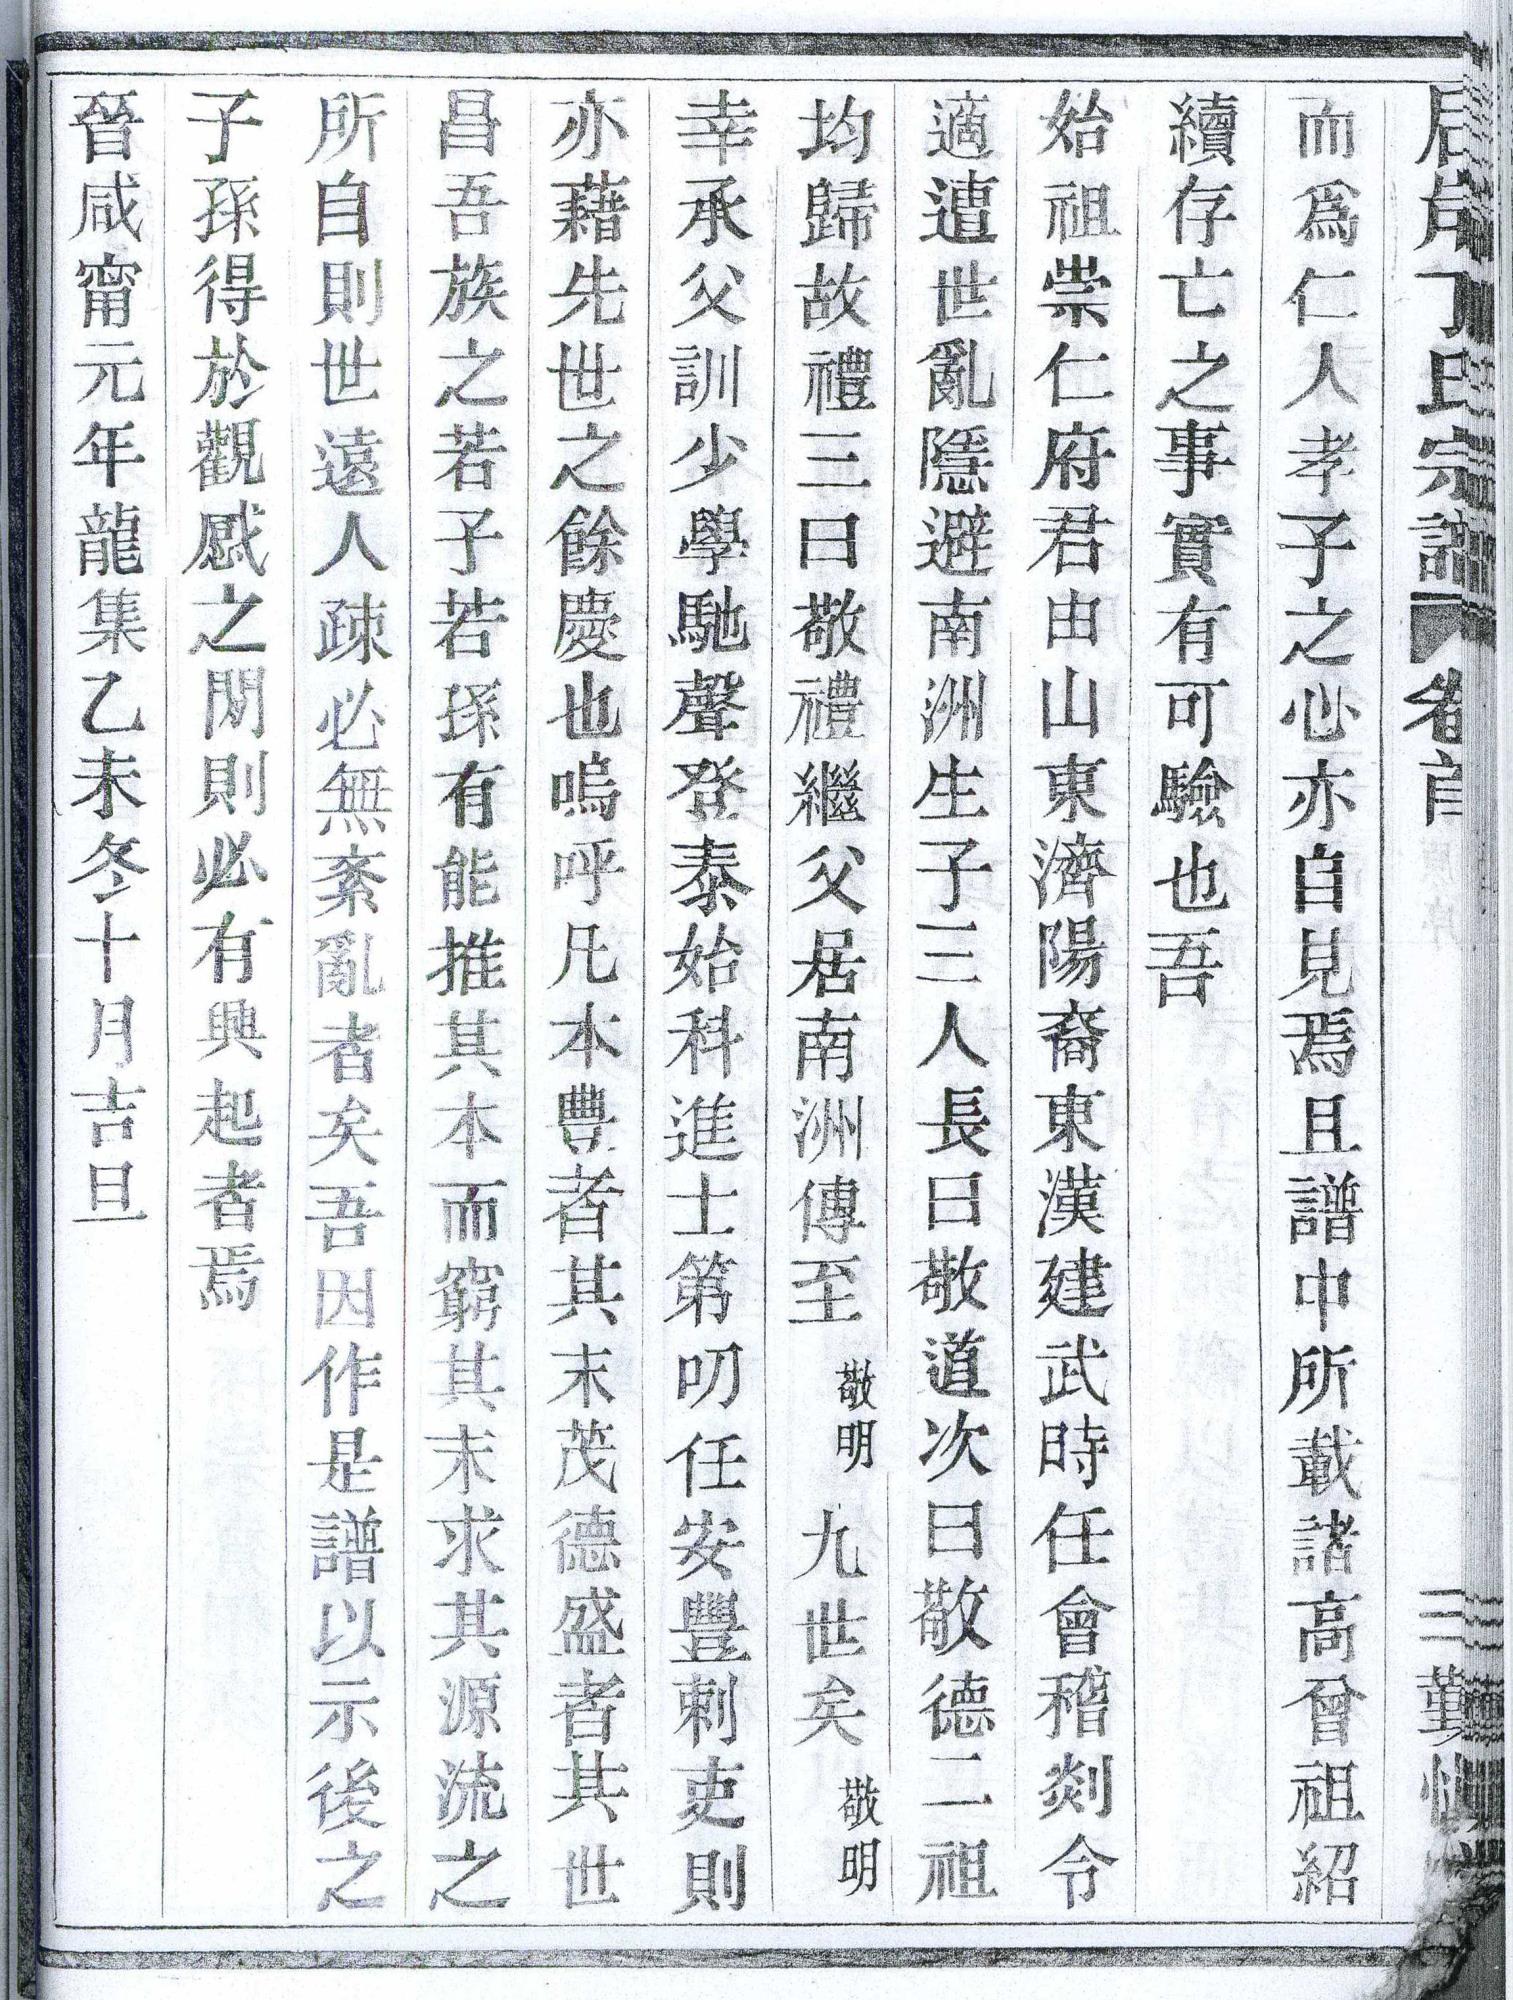 丁氏宗譜 卷首 三
而爲仁人孝子之心亦自見焉且譜中所載諸高曾祖紹
續存亡之事實有可驗也吾
始祖崇仁府君由山東濟陽裔東漢建武時任會稽剡令
適遭世亂隱避南洲生子三人長曰敬道次曰敬德二祖
均歸故禮三曰敬禮繼父居南洲傳至敬明九世矣敬明
幸承父訓少學馳聲登泰始科進士第叨任安豐剌吏則
亦藉先世之餘慶也嗚呼凡本豊者其末茂德盛者其世
昌吾族之若子若孫有能推其本而窮其末求其源流之
所自則世遠人疎必無紊亂者矣吾因作是譜以示後之
子孫得於觀感之閒則必有興起者焉
晉咸甯元年龍集乙未冬十月吉旦